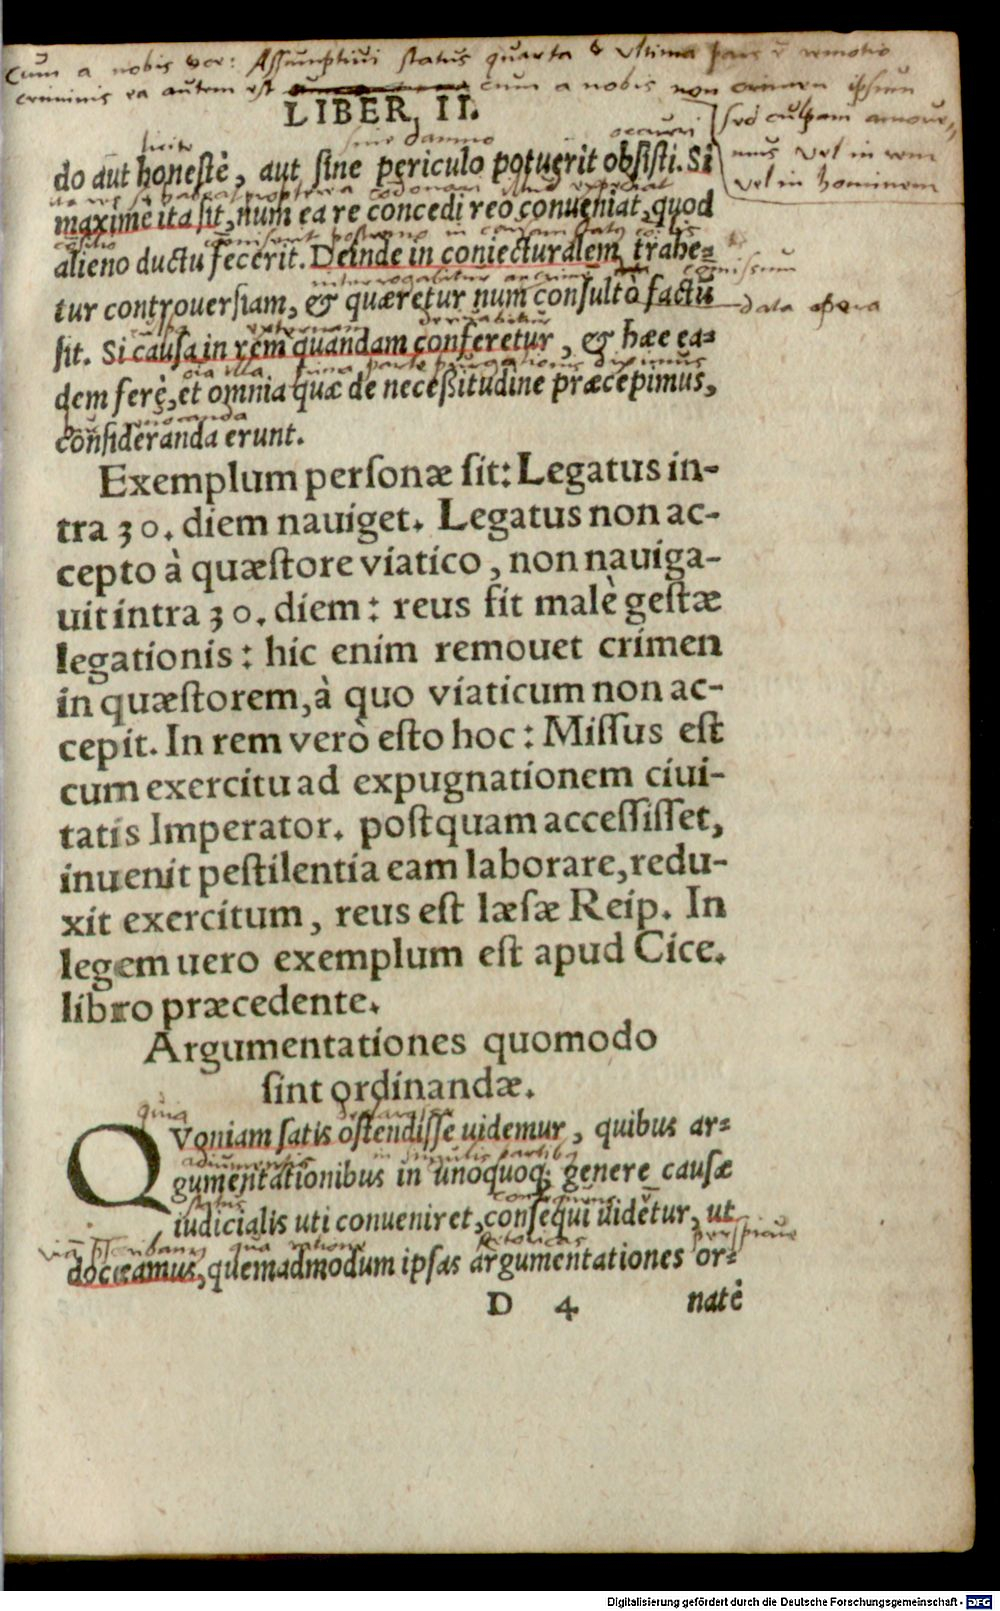 Cum a nobis Assumptiui status quarta & vltima pars remotio
criminis ea autem est cum a nobis non crimen ipsum
sed culpam amoue-
mus vel in rem
vel in hominem
LIBER II.
licite sine damno occurri
do aut honestè, aut sine periculo potuerit obsisti. Si
maxime ita sit, num ea re concedi reo conueniat, quod
alieno ductu fecerit. Deinde in coniecturalem trahe-
comissum
tur controuersiam, & quæretur num consultò factũ
data opera
culpa externam deriuabitur
sit. Si causa in rem quandam conferetur, & hæc ea-
dem ferè, et omnia quæ de necessitudine præcepimus,
consideranda erunt.
Exemplum personæ sit: Legatus in-
tra 30. diem nauiget. Legatus non ac-
cepto à quæstore viatico, non nauiga-
uit intra 30. diem: reus fit malè gestæ
legationis: hic enim remouet crimen
in quæstorem, à quo viaticum non ac-
cepit. In rem verò esto hoc: Missus est
cum exercitu ad expugnationem ciui-
tatis Imperator. postquam accessisset,
inuenit pestilentia eam laborare, redu-
xit exercitum, reus est læsæ Reip. In
legem uero exemplum est apud Cice.
libro præcedente.
Argumentationes quomodo
sint ordinandæ.
quia
QVoniam satis ostendisse uidemur, quibus ar-
in singulis partibus
gumentationibus in unoquoq; genere causæ
status
iudicialis uti conueniret, consequi uidetur, ut
qua ratione rhetoricas perspicue
doceamus, quemadmodum ipsas argumentationes or-
D 4 natè
Digitalisierung gefördert durch die Deutsche Forschungsgemeinschaft - DFG